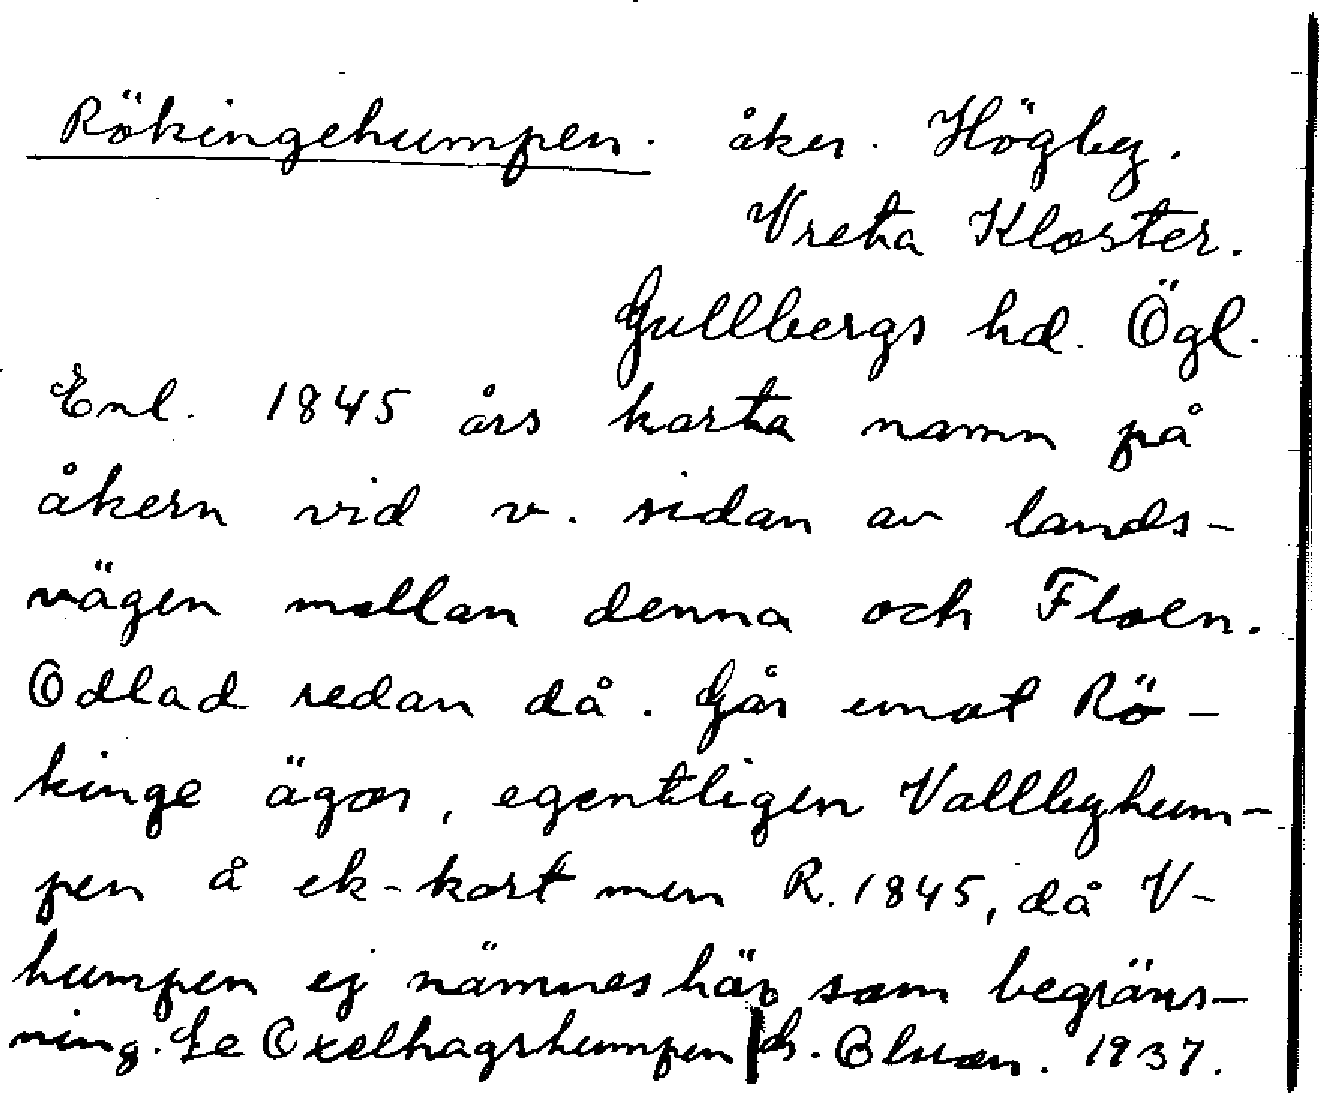 Rökingehumpen. åker. Högby.
Vreta Kloster.
Gullbergs hd. Ögl.
Enl. 1845 års karta namn på
åkern vid v. sidan av lands-
vägen mellan denna och Floen.
Odlad redan då. Går emot Rö-
kinge ägor, egentligen Vallbyhum-
pen å ek-kart men R. 1845, då V-
humpen ej nämnes här som begräns-
ning. Se Oxelhagshumpen 1937.